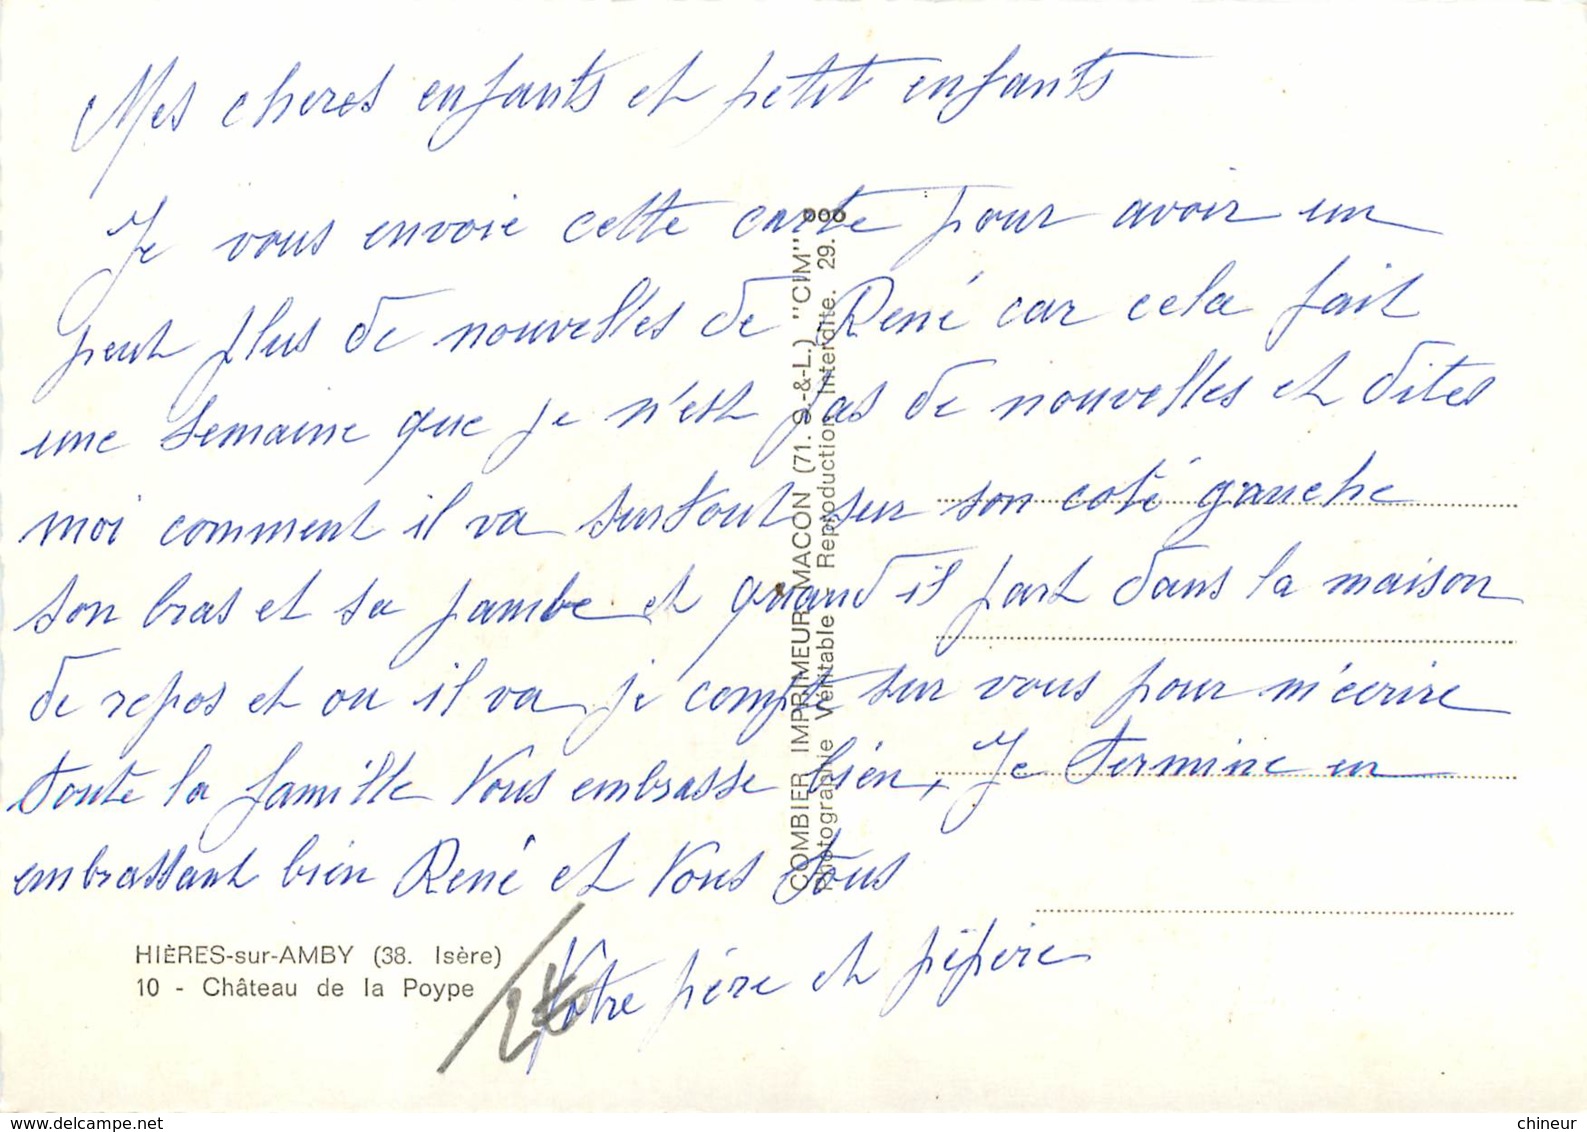 Mes cheres enfants et petit enfants
Je vous envoie cette carte pour avoir un
peut plus de nouvelles de René car cela fait
une semaine que je n'est pas de nouvelles et dites
moi comment il va surtout sur son coté gauche
son bras et sa jambe et quand il part dans la maison
de repos et ou il va, je compte sur vous pour m'écrire
toute la famille vous embrasse bien, Je termine en
embrassant bien René et vous tous
Votre père et pépère
HIÈRES-sur-AMBY (38. Isère)
10 - Château de la Poype
COMBIER IMPRIMEUR MACON (71. S.-&-L.) "CIM"
Photographie Véritable Reproduction Interdite. 29.
www.delcampe.net
chineur